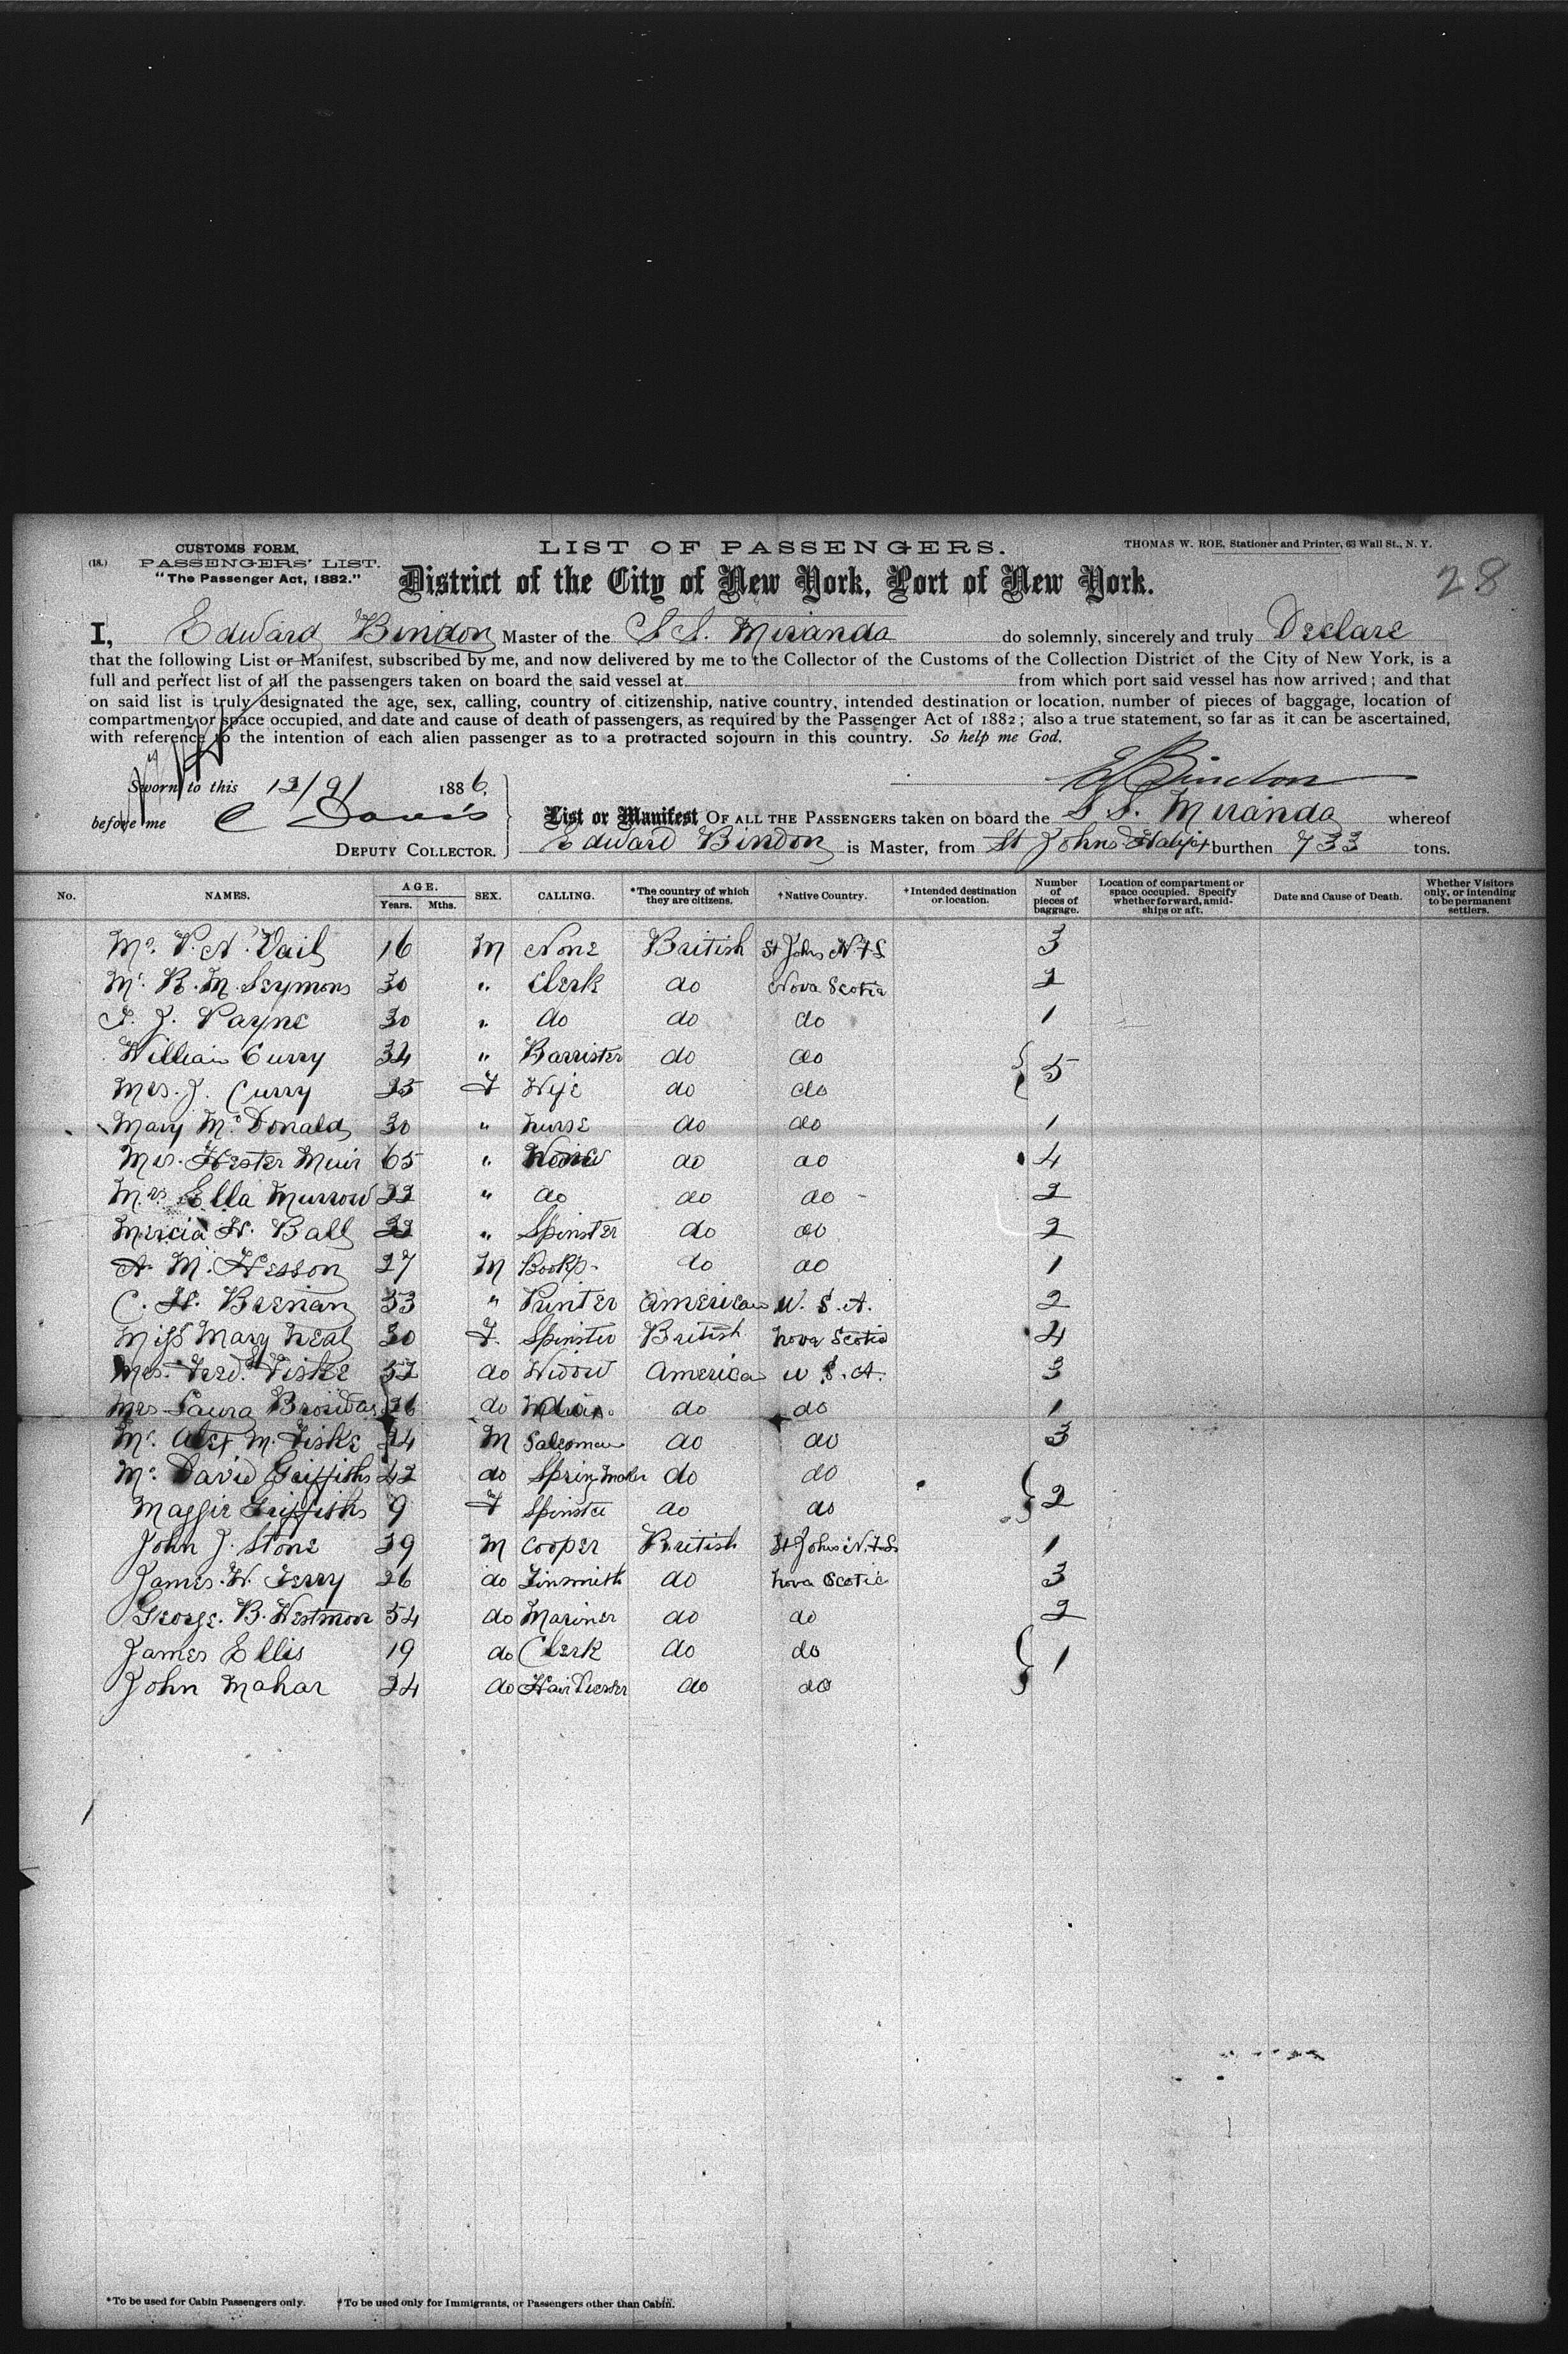 (18.)
CUSTOMS FORM,
PASSENGERS' LIST.
"The Passenger Act, 1882."
LIST OF PASSENGERS.
THOMAS W. ROE, Stationer and Printer, 63 Wall St., N. Y.
District of the City of New York, Port of New York.
28
I, Edward Bindon Master of the S S. Miranda do solemnly, sincerely and truly Declare
that the following List or Manifest, subscribed by me, and now delivered by me to the Collector of the Customs of the Collection District of the City of New York, is a
full and perfect list of all the passengers taken on board the said vessel at from which port said vessel has now arrived; and that
on said list is truly designated the age, sex, calling, country of citizenship, native country, intended destination or location, number of pieces of baggage, location of
compartment or space occupied, and date and cause of death of passengers, as required by the Passenger Act of 1882; also a true statement, so far as it can be ascertained,
with reference to the intention of each alien passenger as to a protracted sojourn in this country. So help me God.
E Bindon
Sworn to this 13/9/ 1886,
before me C Davis
DEPUTY COLLECTOR.
List or Manifest OF ALL THE PASSENGERS taken on board the S S. Miranda whereof
Edward Bindon is Master, from St Johns & Halifax burthen 733 tons.
No. NAMES. AGE. Years. Mths. SEX. CALLING. *The country of which they are citizens. †Native Country. †Intended destination or location. Number of pieces of baggage. Location of compartment or space occupied. Specify whether forward, amidships or aft. Date and Cause of Death. Whether Visitors only, or intending to be permanent settlers.
Mr. P. N. Vail 16 M None British St Johns N.F.L 3
Mr. R. M. Seymons 30 " Clerk do Nova Scotia 2
J. Payne 30 " do do do 1
William Curry 34 " Barrister do do 5
Mrs. J. Curry F Wife do do
Mary McDonald 30 " nurse do do 1
Mrs. Hester Muir 65 " do do 4
Mrs Ella Murrow 22 " do do do 2
Mercia H. Ball " Spinster do do 2
A. M. Hesson 27 M Bookp. do do 1
C. H. Brenan 33 " Printer American U. S. A. 2
Miss Mary Neal 30 F. Spinster British Nova Scotia 4
Mrs. Fred. Fiske 52 do Widow America U S. A. 3
Mrs Laura 26 do do do 1
Mr. Alex M. Fiske 24 M Salesman do do 3
Mr. David Griffiths 42 do Spring Maker do do 2
Maggie Griffiths 9 F Spinster do do
John J. Stone 39 M Cooper British St Johns N.F.L 1
James. W. Terry 26 do Tinsmith do Nova Scotia 3
George. B. Westmore 54 do Mariner do do 2
James Ellis 19 do Clerk do do 1
John Mahar 24 do Hair Dresser do do
*To be used for Cabin Passengers only. †To be used only for Immigrants, or Passengers other than Cabin.